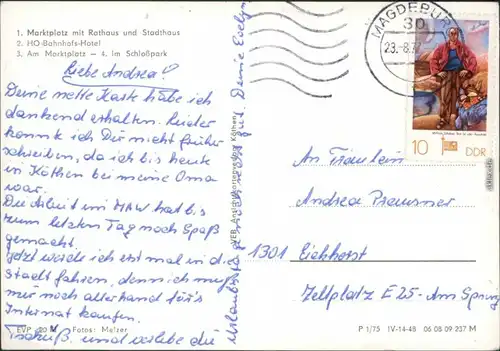 1. Marktplatz mit Rathaus und Stadthaus
2. HO-Bahnhofs-Hotel
3. Am Marktplatz — 4. Im Schloßpark
Liebe Andrea!
Deine nette Karte habe ich
dankend erhalten. Leider
konnte ich Dir nicht früher
schreiben, da ich bis heute
in Köthen bei meine Oma
war.
Die Arbeit im MAW hat bis
zum letzten Tag noch Spaß
gemacht.
Jetzt werde ich erst mal in die
Stadt fahren, denn ich muß
mir noch allerhand för's
Internat kaufen.
Tschüß, und verlebe die
Urlaubstage noch recht gut. Deine Evelyn
EVP M Fotos: Melzer
VEB Köthen
MAGDEBURG
30
23.-8.7
10 DDR
An Fräulein
Andrea
1301 Eichhorst
Zeltplatz E 25 - Am Spring
P 1/75 IV-14-48 06 08 09 237 M